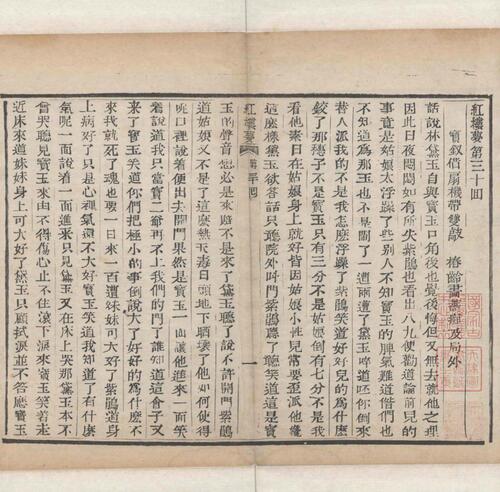 紅樓夢第三十回
寶釵借扇機帶雙敲　椿齡畫薔癡及局外
話說林黛玉自與寶玉口角後也覺後悔但又無去就他之理
因此日夜悶悶如有所失紫鵑也看出八九便勸道論前兒的
事竟是姑娘太浮躁了些别人不知寶玉的脾氣難道偺們也
不知道爲那玉也不是鬧了一遭兩遭了黛玉啐道呸你倒來
替人派我的不是我怎麽浮躁了紫鵑笑道好好兒的爲什麽
鉸了那穗子不是寶玉只有三分不是姑娘倒有七分不是我
看他素日在姑娘身上就好皆因姑娘小性兒常要歪派他纔
這麽樣黛玉欲答話只聽院外叫門紫鵑聽了聽笑道這是寶
紅樓夢　第三十回　一
玉的聲音想必是來賠不是來了黛玉聽了說不許開門紫鵑
道姑娘又不是了這麽熱天毒日頭地下晒壞了他如何使得
呢口裡說着便出去開門果然是寶玉一面讓他進來一面笑
着說道我只當寶二爺再不上我們的門了誰知道這會子又
來了寶玉笑道你們把極小的事倒說大了好好的爲什麽不
來我就死了魂也要一日來一百遭妹妹可大好了紫鵑道身
上病好了只是心裡氣還不大好寶玉笑道我知道了有什麽
氣呢一面說着一面進來只見黛玉又在床上哭那黛玉本不
曾哭聽見寶玉來由不得傷心止不住滾下淚來寶玉笑着走
近床來道妹妹身上可大好了黛玉只顧拭淚並不答應寶玉